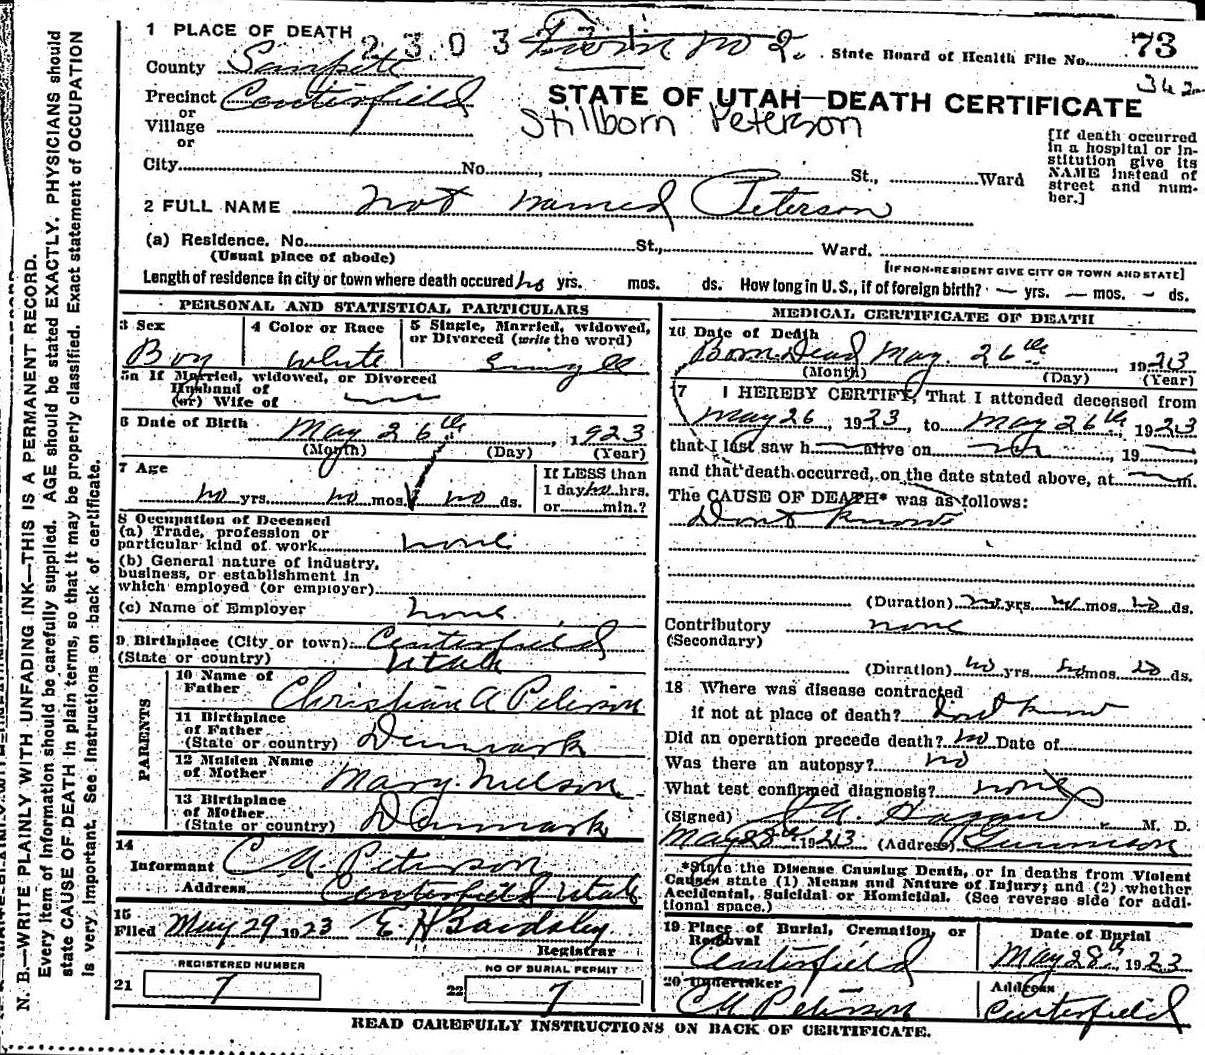 1 PLACE OF DEATH 2303 Twin No 2. State Board of Health File No. 73
County Sanpete 342
Precinct Centerfield STATE OF UTAH—DEATH CERTIFICATE
or
Village Stillborn Peterson
or
City No. St., Ward
[If death occurred in a hospital or institution give its NAME instead of street and number.]
2 FULL NAME Not named Peterson
(a) Residence. No. St., Ward.
(Usual place of abode) [IF NON-RESIDENT GIVE CITY OR TOWN AND STATE]
Length of residence in city or town where death occured no yrs. mos. ds. How long in U.S., if of foreign birth? — yrs. — mos. — ds.
PERSONAL AND STATISTICAL PARTICULARS
3 Sex 4 Color or Race 5 Single, Married, widowed, or Divorced (write the word)
Boy White Single
5a If Married, widowed, or Divorced
Husband of
(or) Wife of
6 Date of Birth May 26th, 1923
(Month) (Day) (Year)
7 Age If LESS than
no yrs. no mos. no ds. 1 day no hrs.
or min.?
8 Occupation of Deceased
(a) Trade, profession or
particular kind of work none
(b) General nature of industry,
business, or establishment in
which employed (or employer)
(c) Name of Employer none
9 Birthplace (City or town) Centerfield
(State or country) Utah
PARENTS
10 Name of
Father Christian A Peterson
11 Birthplace
of Father
(State or country) Denmark
12 Maiden Name
of Mother Mary Nielson
13 Birthplace
of Mother
(State or country) Denmark
14
Informant C A Peterson
Address Centerfield Utah
15
Filed May 29 1923 E H Bardsley
Registrar
REGISTERED NUMBER NO OF BURIAL PERMIT
21 7 22 7
MEDICAL CERTIFICATE OF DEATH
16 Date of Death
Born Dead May 26th 1923
(Month) (Day) (Year)
17 I HEREBY CERTIFY, That I attended deceased from
May 26, 1923, to May 26th, 1923
that I last saw h alive on , 19
and that death occurred, on the date stated above, at m.
The CAUSE OF DEATH* was as follows:
Dont know
(Duration) no yrs. no mos. no ds.
Contributory none
(Secondary)
(Duration) no yrs. no mos. no ds.
18 Where was disease contracted
if not at place of death? dont know
Did an operation precede death? no Date of
Was there an autopsy? no
What test confirmed diagnosis? none
(Signed) J A Hagan M. D.
May 28th 1923 (Address) Gunnison
*State the Disease Causing Death, or in deaths from Violent
Causes state (1) Means and Nature of Injury; and (2) whether
Accidental, Suicidal or Homicidal. (See reverse side for addi-
tional space.)
19 Place of Burial, Cremation, or Removal Date of Burial
Centerfield May 28th 1923
20 Undertaker Address
C A Peterson Centerfield
READ CAREFULLY INSTRUCTIONS ON BACK OF CERTIFICATE.
N. B.—WRITE PLAINLY WITH UNFADING INK—THIS IS A PERMANENT RECORD.
Every item of information should be carefully supplied. AGE should be stated EXACTLY. PHYSICIANS should
state CAUSE OF DEATH in plain terms, so that it may be properly classified. Exact statement of OCCUPATION
is very important. See instructions on back of certificate.